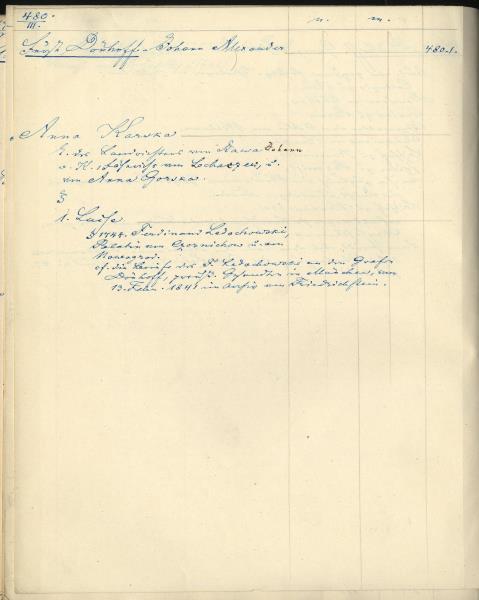 480.
III.
n. m.
Dönhoff - Johann Alexander
480.1.
Anna Karska
T. des Landrichters von Rawa Johann
v. K. u.
von Anna Gorska.
1. Luise
1744. Ferdinand Ledochowski,
Palatin von Czernichow u. von
Nowogrod.
cf. die Briefe des F. Ledochowski an den Grafen
Dönhoff, Gesandter in München, von
13. Febr. 1841 im Archiv von Friedrichstein.